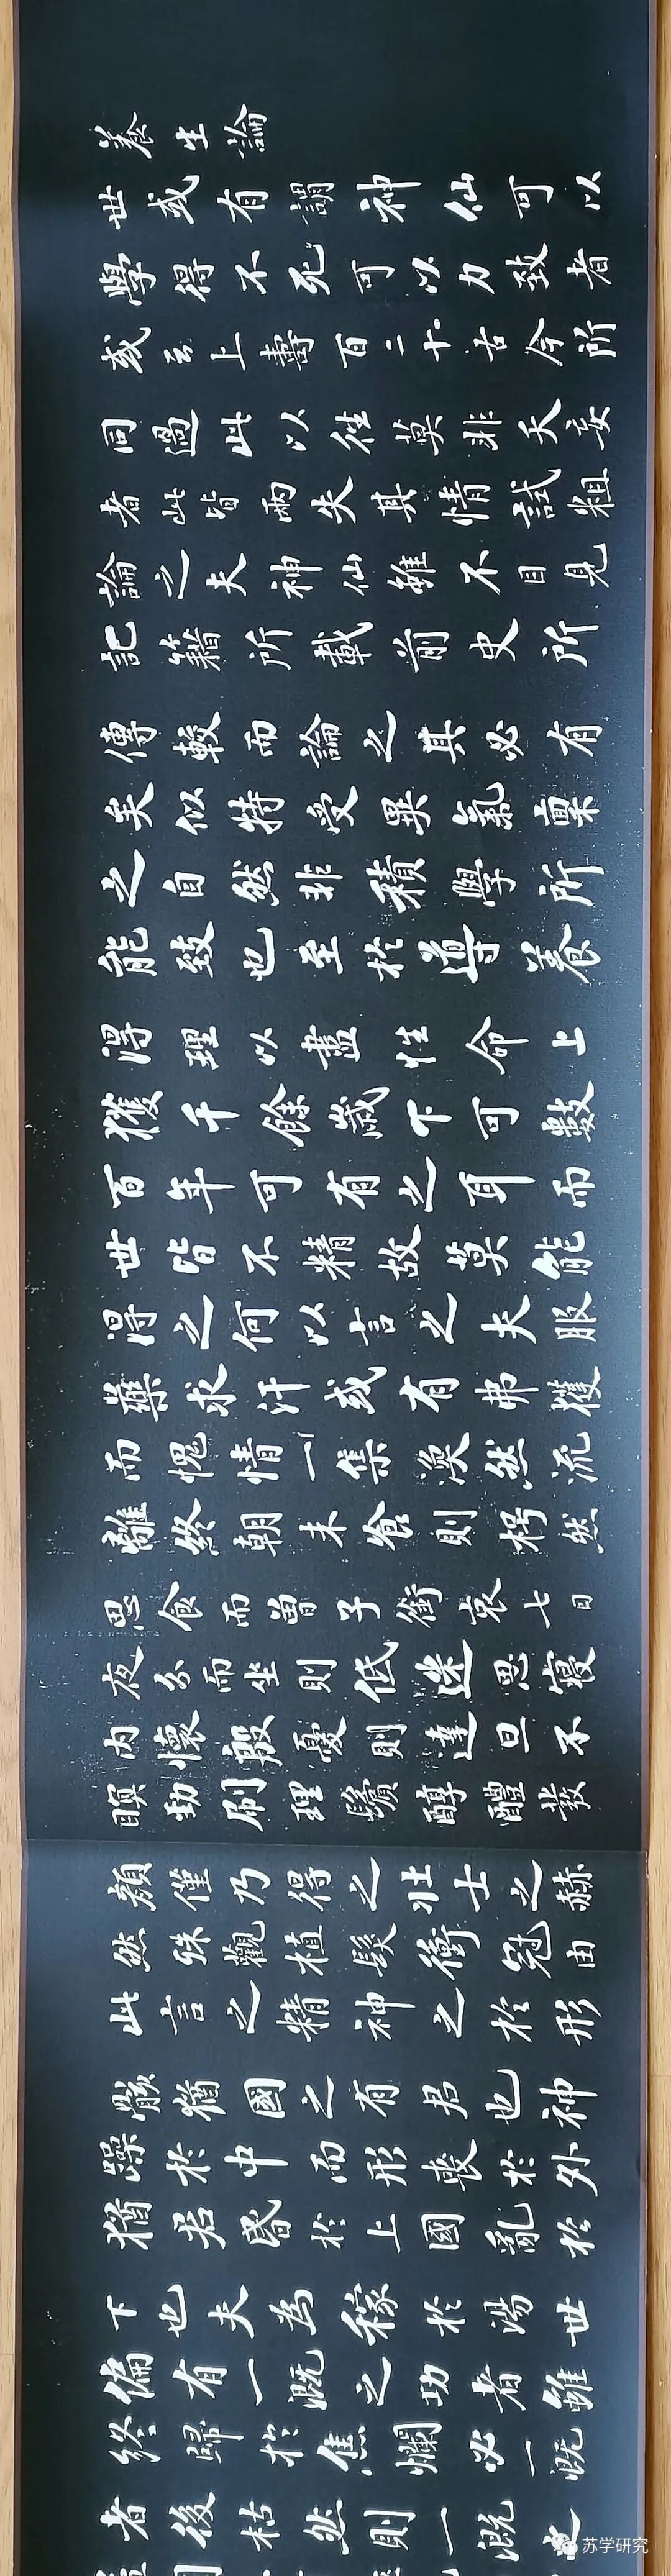 養生論
世或有謂神仙可以
學得不死可以力致者
或云上壽百二十古今所
同過此以往莫非夭妄
者此皆兩失其情試粗
論之夫神仙雖不目見
記籍所載前史所
傳較而論之其必有
矣似特受異氣稟
之自然非積學所
能致也至於導養
得理以盡性命上
獲千餘歲下可數
百年可有之耳而
世皆不精故莫能
得之何以言之夫服
藥求汗或有弗獲
而愧情一集渙然流
離終朝未食則枵然
思食而曾子銜哀七日
夜分而坐則低迷思寢
內懷殷憂則達旦不
瞑勁刷理鬢醇醴發
顏僅乃得之壯士之赫
然殊觀植髮衝冠由
此言之精神之於形
骸猶國之有君也神
躁於中而形喪於外
猶君昏於上國亂於
下也夫為稼於湯世
偏有一溉之功者雖
終歸於焦爛必一溉
者後枯然則一溉
苏学研究